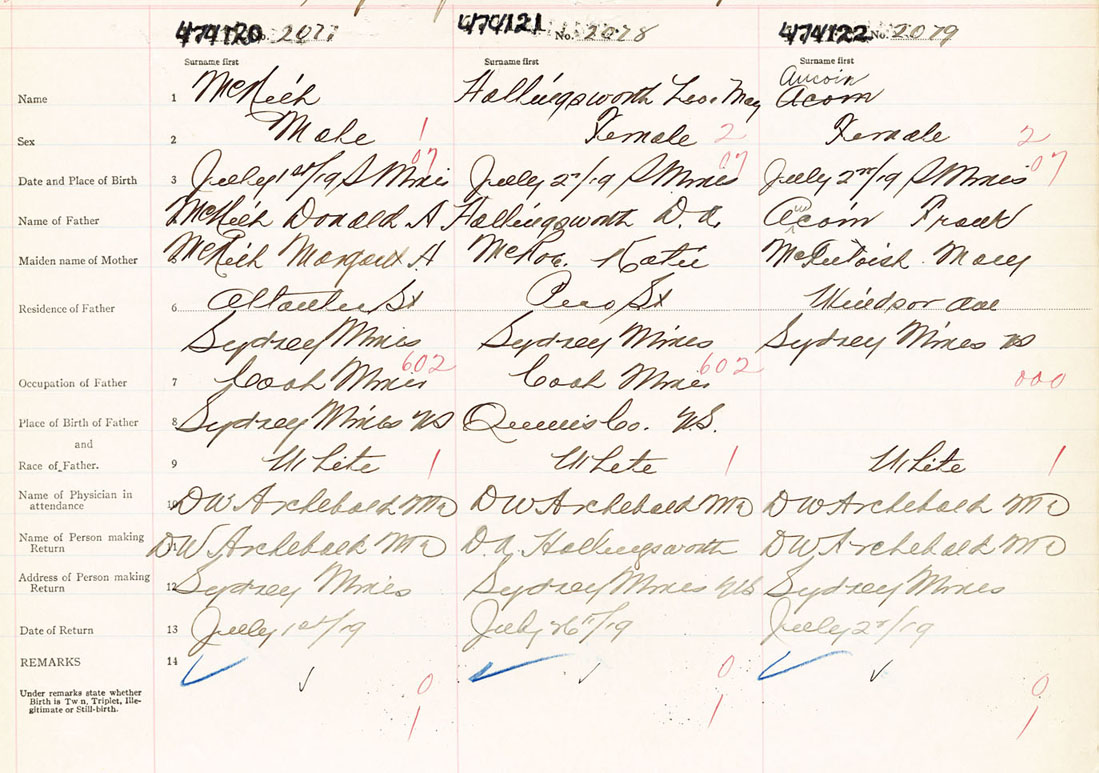 474120 No. 2077 474121 No. 2078 474122 No. 2079
Surname first Surname first Surname first
Aucoin
Name 1 McNeil Hollingsworth May Acorn
Sex 2 Male 1 Female 2 Female 2
07 07 07
Date and Place of Birth 3 July 1st/19 S Mines July 2n/19 S Mines July 2nd/19 S Mines
Name of Father Donald A Hollingsworth D. A. Frank
Maiden name of Mother Margaret H Katie McIntosh Mary
Residence of Father 6 Atlantic St Pero St Windsor Ave
Sydney Mines Sydney Mines Sydney Mines NS
602 602
Occupation of Father 7 Coal Miner Coal Miner 000
Place of Birth of Father 8 Sydney Mines NS Queens Co. N.S.
and
Race of Father. 9 White 1 White 1 White 1
Name of Physician in
attendance 10 D W Archebald MD D W Archebald MD D W Archebald MD
Name of Person making
Return 11 D W Archebald MD D. A. Hollingsworth D W Archebald MD
Address of Person making
Return 12 Sydney Mines Sydney Mines NS Sydney Mines
Date of Return 13 July 1st/19 July 26th/19 July 2n/19
REMARKS 14
Under remarks state whether
Birth is Twin, Triplet, Ille-
gitimate or Still-birth.
0 0 0
1 1 1